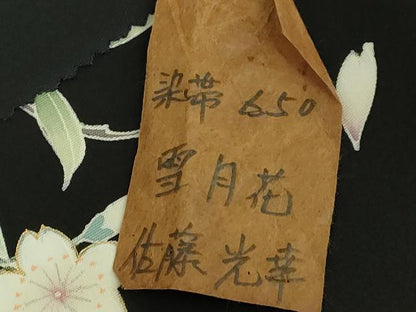 染帯 650
雪月花
佐藤光幸